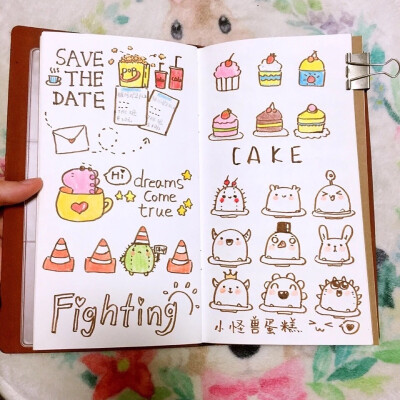 SAVE
THE
DATE
POP
Hi
dreams
come
true
Fighting
CAKE
小怪兽蛋糕..